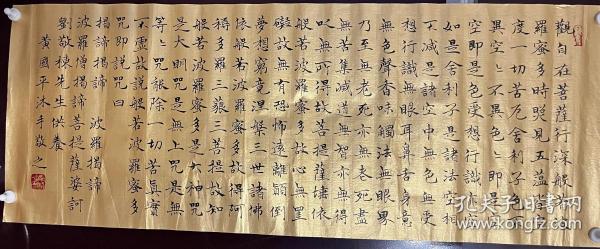 觀自在菩薩行深般
羅蜜多時照見五蘊皆
度一切苦厄舍利子色
異空空不異色色即是
空即是色受想行識
如是舍利子是諸法空相
不减是諸空中無色無受
想行識無眼耳鼻舌身意
無色聲香味觸法無眼界
乃至無老死亦無老死盡
無苦集滅道無智亦無得
以無所得故菩提薩埵依
般若波羅蜜多故心無罣
礙故無有恐怖遠離顛倒
夢想究竟涅槃三世諸佛
依般若波羅蜜多故得阿
耨多羅三藐三菩提故知
般若波羅蜜多是大神咒
是大明咒是無上咒是無
等等咒能除一切苦真實
不虛故說般若波羅蜜多
咒即說咒曰
揭諦揭諦 波羅揭諦
波羅僧揭諦菩提薩婆訶
劉敬棟先生供養
黃國平沐手敬之